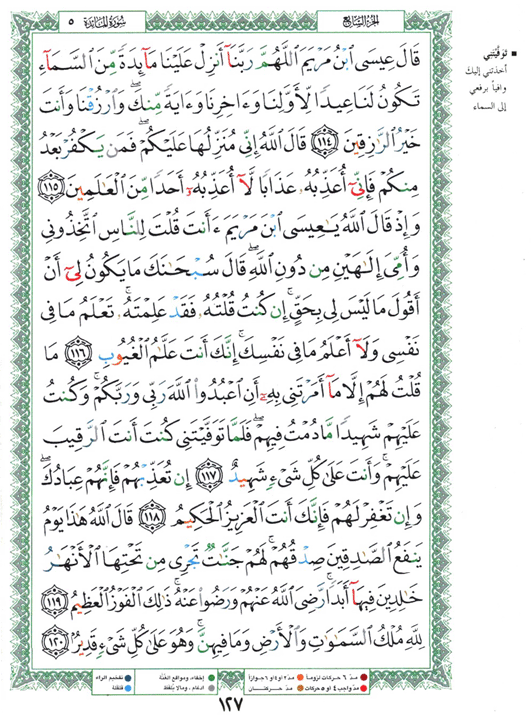 الجزء السابع
سُورَةُ المَائدة ٥
قَالَ عِيسَى ٱبْنُ مَرْيَمَ ٱللَّهُمَّ رَبَّنَآ أَنزِلْ عَلَيْنَا مَآئِدَةً مِّنَ ٱلسَّمَآءِ
تَكُونُ لَنَا عِيدًا لِّأَوَّلِنَا وَءَاخِرِنَا وَءَايَةً مِّنكَ ۖ وَٱرْزُقْنَا وَأَنتَ
خَيْرُ ٱلرَّٰزِقِينَ ١١٤ قَالَ ٱللَّهُ إِنِّى مُنَزِّلُهَا عَلَيْكُمْ ۖ فَمَن يَكْفُرْ بَعْدُ
مِنكُمْ فَإِنِّىٓ أُعَذِّبُهُۥ عَذَابًا لَّآ أُعَذِّبُهُۥٓ أَحَدًا مِّنَ ٱلْعَٰلَمِينَ ١١٥
وَإِذْ قَالَ ٱللَّهُ يَٰعِيسَى ٱبْنَ مَرْيَمَ ءَأَنتَ قُلْتَ لِلنَّاسِ ٱتَّخِذُونِى
وَأُمِّىَ إِلَٰهَيْنِ مِن دُونِ ٱللَّهِ ۖ قَالَ سُبْحَٰنَكَ مَا يَكُونُ لِىٓ أَنْ
أَقُولَ مَا لَيْسَ لِى بِحَقٍّ ۚ إِن كُنتُ قُلْتُهُۥ فَقَدْ عَلِمْتَهُۥ ۚ تَعْلَمُ مَا فِى
نَفْسِى وَلَآ أَعْلَمُ مَا فِى نَفْسِكَ ۚ إِنَّكَ أَنتَ عَلَّٰمُ ٱلْغُيُوبِ ١١٦ مَا
قُلْتُ لَهُمْ إِلَّا مَآ أَمَرْتَنِى بِهِۦٓ أَنِ ٱعْبُدُوا۟ ٱللَّهَ رَبِّى وَرَبَّكُمْ ۚ وَكُنتُ
عَلَيْهِمْ شَهِيدًا مَّا دُمْتُ فِيهِمْ ۖ فَلَمَّا تَوَفَّيْتَنِى كُنتَ أَنتَ ٱلرَّقِيبَ
عَلَيْهِمْ ۚ وَأَنتَ عَلَىٰ كُلِّ شَىْءٍ شَهِيدٌ ١١٧ إِن تُعَذِّبْهُمْ فَإِنَّهُمْ عِبَادُكَ ۖ
وَإِن تَغْفِرْ لَهُمْ فَإِنَّكَ أَنتَ ٱلْعَزِيزُ ٱلْحَكِيمُ ١١٨ قَالَ ٱللَّهُ هَٰذَا يَوْمُ
يَنفَعُ ٱلصَّٰدِقِينَ صِدْقُهُمْ ۚ لَهُمْ جَنَّٰتٌ تَجْرِى مِن تَحْتِهَا ٱلْأَنْهَٰرُ
خَٰلِدِينَ فِيهَآ أَبَدًا ۚ رَّضِىَ ٱللَّهُ عَنْهُمْ وَرَضُوا۟ عَنْهُ ۚ ذَٰلِكَ ٱلْفَوْزُ ٱلْعَظِيمُ ١١٩
لِلَّهِ مُلْكُ ٱلسَّمَٰوَٰتِ وَٱلْأَرْضِ وَمَا فِيهِنَّ ۚ وَهُوَ عَلَىٰ كُلِّ شَىْءٍ قَدِيرٌۢ ١٢٠
■ تَوَفَّيْتَنِي
أخذتني إليك
وافياً برفعي
إلى السماء
مدّ ٦ حركات لزوماً مدّ ٢ أو ٤ أو ٦ جوازاً
مدّ واجب ٤ أو ٥ حركات مدّ حركتان
إخفاء، ومواقع الغُنَّة
ادغام، ومالا يُلفَظ
تفخيم الراء
قلقلة
١٢٧